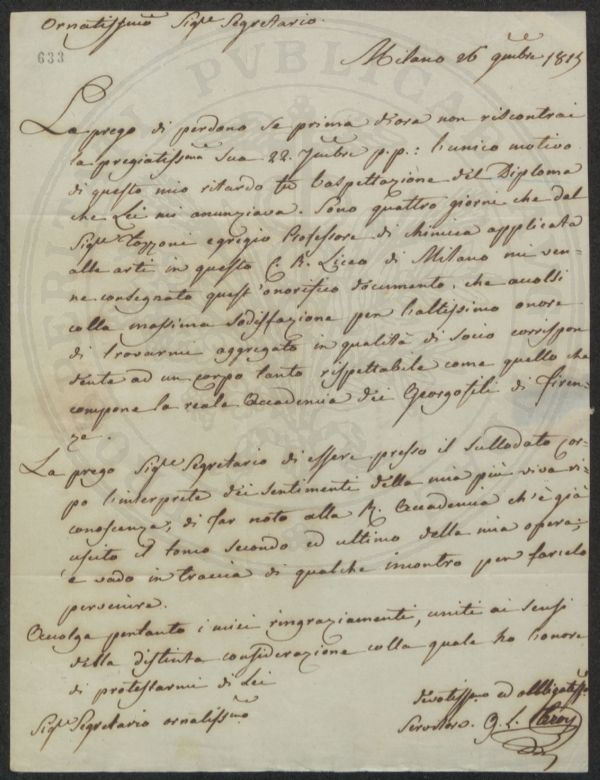 Ornatissmo Sigre Segretario.
633
Milano 26 9mbre 1815
La prego di perdono se prima d'ora non riscontrai
la pregiatissma sua 22. 7mbre p.p.: l'unico motivo
di questo mio ritardo fu l'aspettazione del Diploma
che Lei mi anunziava. Sono quattro giorni che dal
Sigre Tozzoni egregio Professore di chimica applicata
alle arti in questo C. R. Liceo di Milano mi ven-
ne consegnato quest'onorifico documento, che accolsi
colla massima sodisfazione per l'altissimo onore
di trovarmi aggregato in qualità di socio corrispon
dente ad un corpo tanto rispettabile come quello che
compone la reale Accademia dei Georgofili di Firen-
ze.
La prego Sigre Segretario di essere presso il sullodato Cor-
po l'interprete dei sentimenti della mia più viva ri-
conoscenza, di far noto alla R. Accademia ch'è già
uscito il tomo secondo ed ultimo della mia opera,
e vado in traccia di qualche incontro per farielo
pervenire.
Accolga pertanto i miei ringraziamenti, uniti ai sensi
della distinta considerazione colla quale ho l'onore
di protestarmi di Lei
divotissmo ed obbligatissmo
Sigre Segretario ornatissmo
Servitore G. L.
PUBLICAE